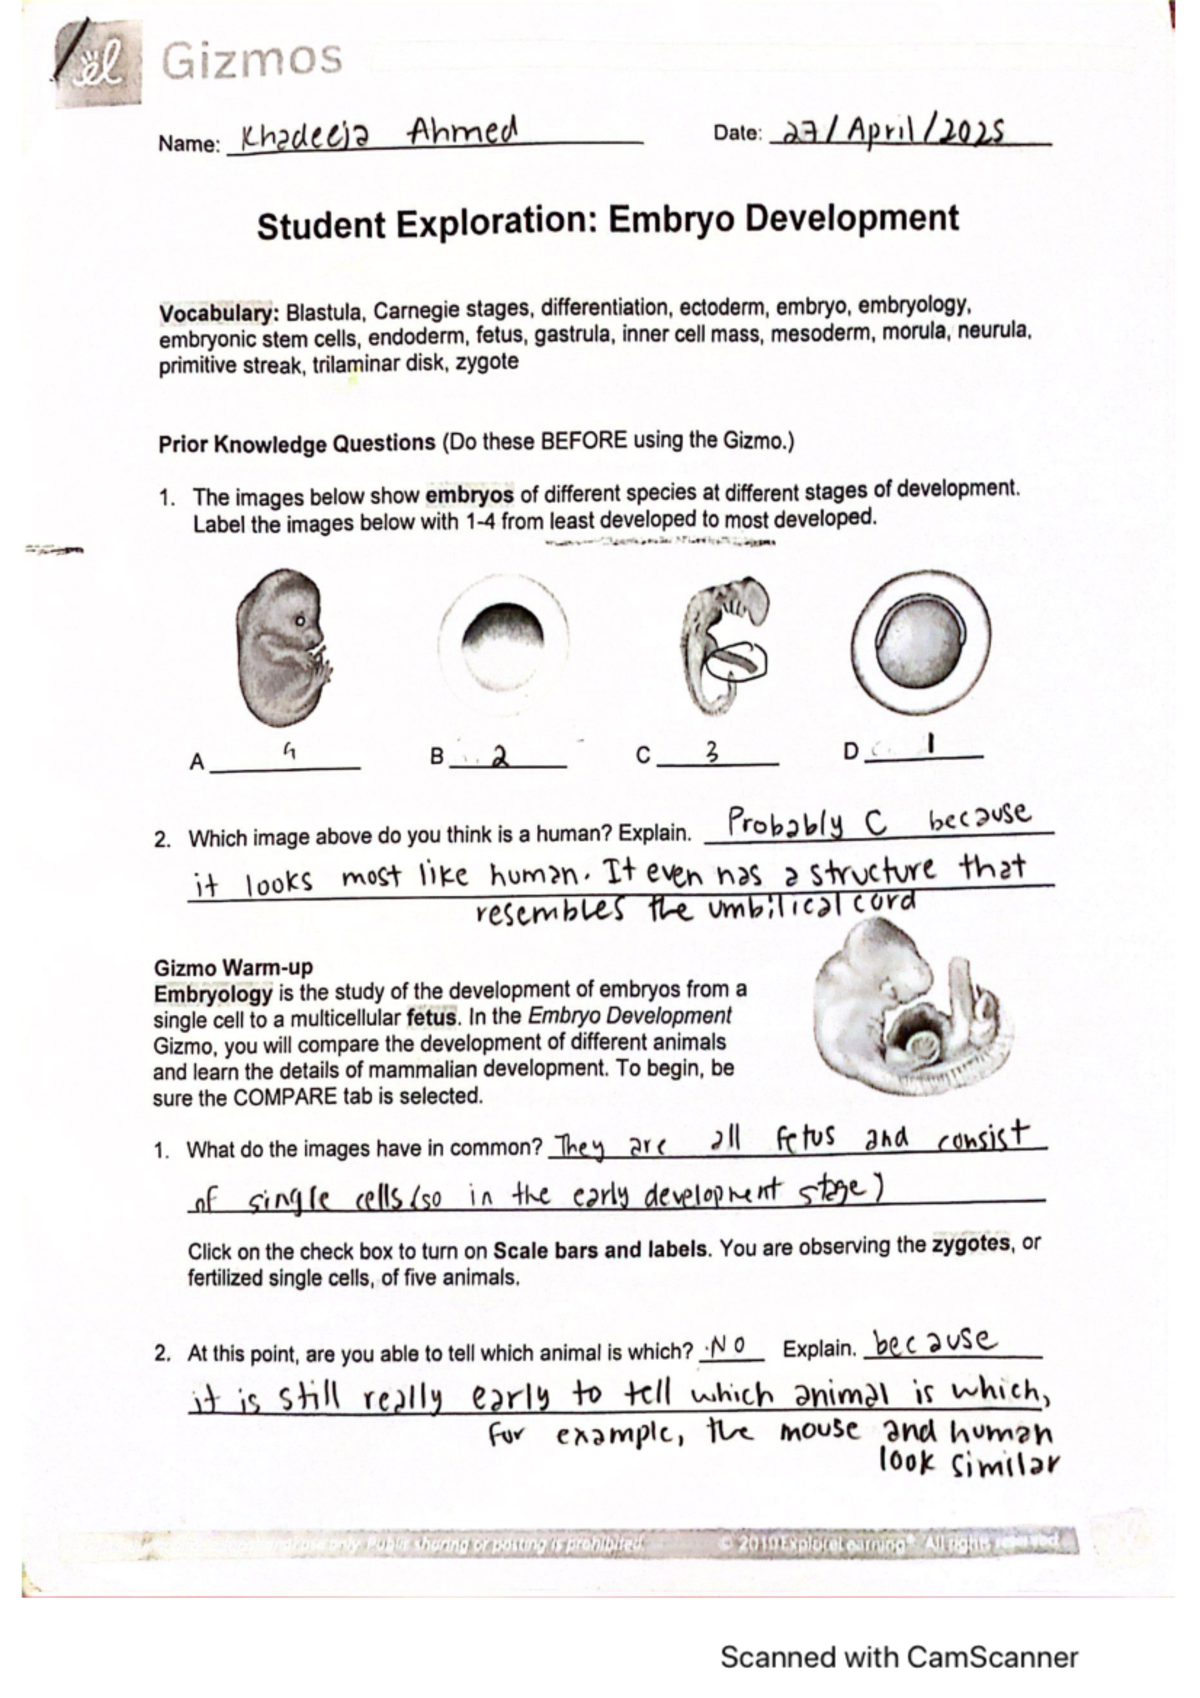 el Gizmos
Name: Khadeeja Ahmed Date: 27/April/2025
Student Exploration: Embryo Development
Vocabulary: Blastula, Carnegie stages, differentiation, ectoderm, embryo, embryology,
embryonic stem cells, endoderm, fetus, gastrula, inner cell mass, mesoderm, morula, neurula,
primitive streak, trilaminar disk, zygote
Prior Knowledge Questions (Do these BEFORE using the Gizmo.)
1. The images below show embryos of different species at different stages of development.
Label the images below with 1-4 from least developed to most developed.
A 4 B 2 C 3 D 1
2. Which image above do you think is a human? Explain. Probably C because
it looks most like human. It even has a structure that
resembles the umbilical cord
Gizmo Warm-up
Embryology is the study of the development of embryos from a
single cell to a multicellular fetus. In the Embryo Development
Gizmo, you will compare the development of different animals
and learn the details of mammalian development. To begin, be
sure the COMPARE tab is selected.
1. What do the images have in common? They are all fetus and consist
of single cells (so in the early development stage)
Click on the check box to turn on Scale bars and labels. You are observing the zygotes, or
fertilized single cells, of five animals.
2. At this point, are you able to tell which animal is which? No Explain. because
it is still really early to tell which animal is which,
for example, the mouse and human
look similar
use only. Public sharing or posting is prohibited. © 2019 ExploreLearning® All rights reserved
Scanned with CamScanner